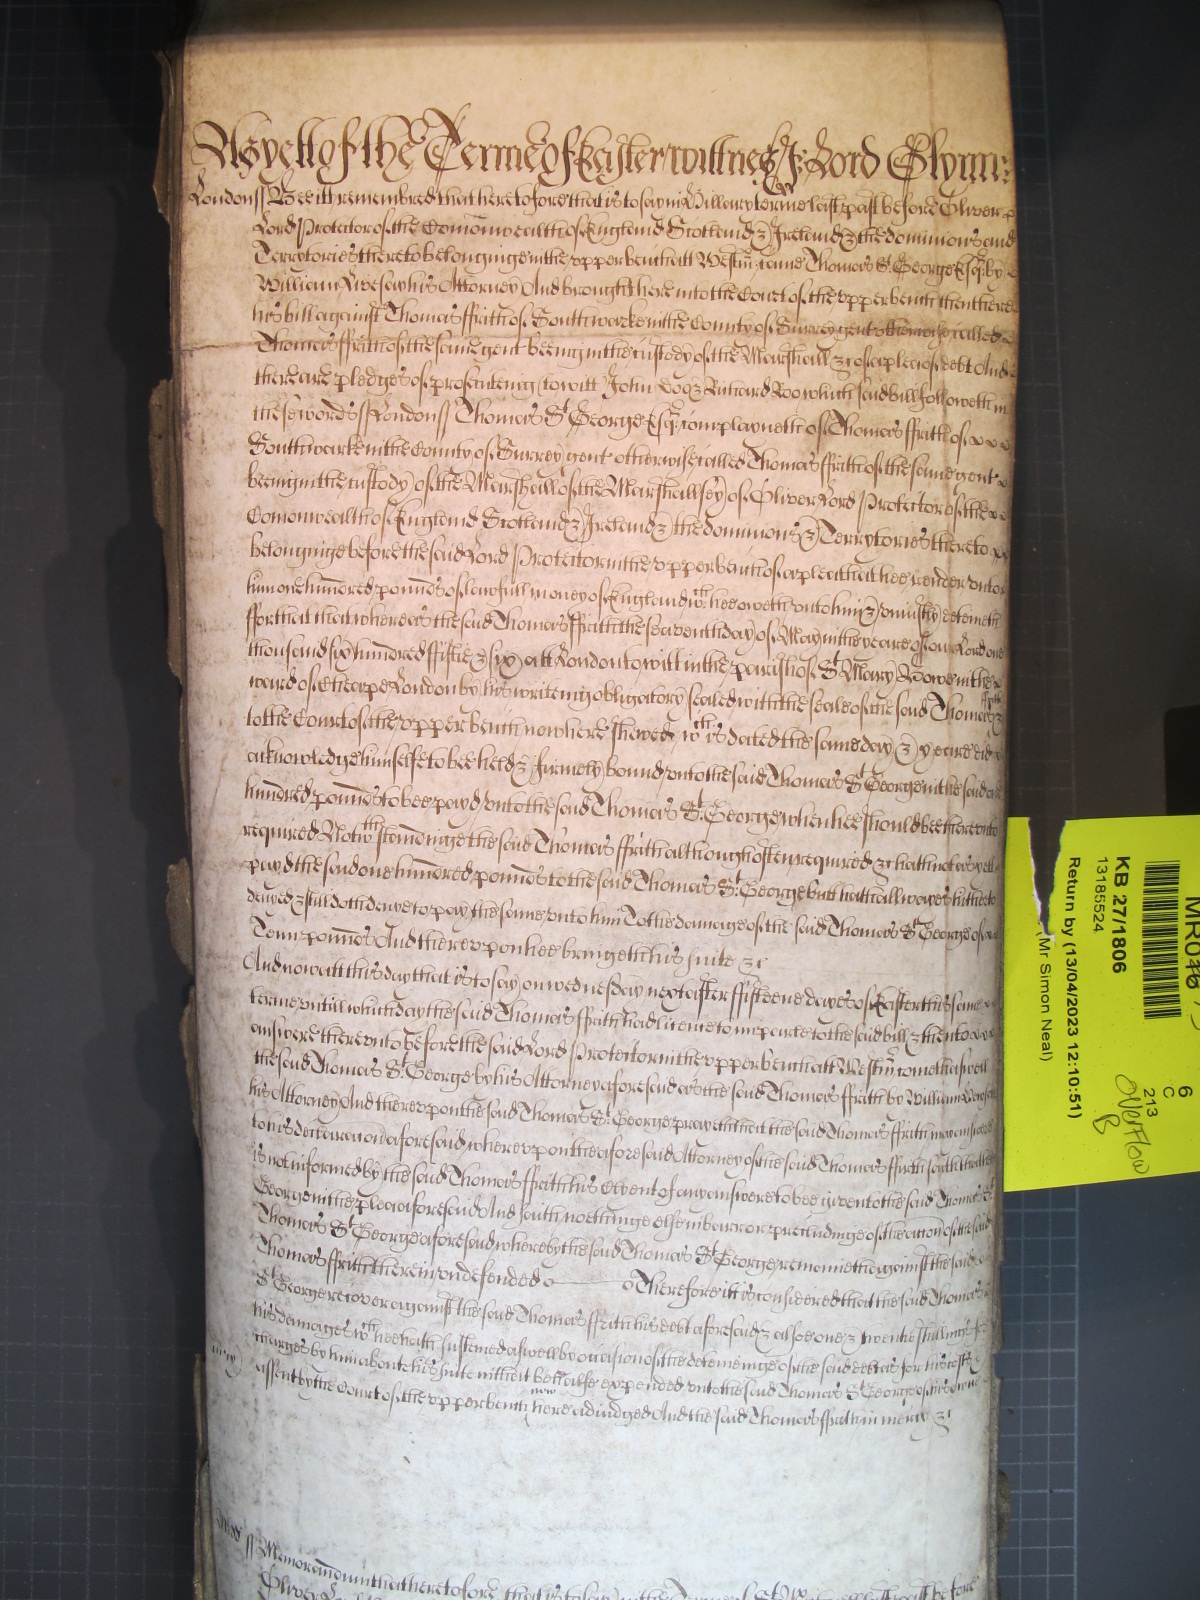 As yett of the Terme of Easter wittnes J: Lord Glynn:
London ss Bee it remembred that heretofore that is to say in Hillary terme last past before Oliver
Lord Protector of the Comonwealth of England Scotland & Ireland & the dominions and
Territories thereto belonginge in the upper bench att Westmr: came Thomas St. George Esqr. by
William Livesay his Attorney And brought here into the Court of the upper bench then there
his bill against Thomas ffrith of Southwarke in the County of Surrey gent otherwise called
Thomas ffrith of the same gent beeing in the custody of the Marshall &c of a plea of debt And
there are pledges of prosecuting to witt John Doe & Richard Roo which said bill followeth in
these words ss London ss Thomas St. George Esqr. complayneth of Thomas ffrith of
Southwarke in the County of Surrey gent otherwise called Thomas ffrith of the same gent
beeing in the custody of the Marshall of the Marshallsey of Oliver Lord Protector of the
Comonwealth of England Scotland & Ireland & the dominions & Terrytories thereto
belonginge before the said Lord Protector in the upper bench of a plea that hee render unto
him one hundred pounds of lawfull money of England wch. hee oweth unto him & uniustly deteineth
ffor that that whereas the said Thomas ffrith the seaventh day of May in the yeare of our Lord one
thousand six hundred fiftie & six att London to witt in the parish of St. Mary Bowe in the
ward of Cheape London by his writeing obligatory sealed with the seale of the said Thomas ffrith &
to the Court of the upper bench now here shewed wch. is dated the same day & yeare did
acknowledge himselfe to bee held & firmely bound unto the said Thomas St. George in the said one
hundred pounds to bee payd unto the said Thomas St. George when hee should bee thereunto
required Notwthstandinge the said Thomas ffrith although often required &c hath not as yett
payd the said one hundred pounds to the said Thomas St. George but hath allwayes hitherto
denyed & still doth denye to pay the same unto him To the damage of the said Thomas St. George of
Tenn pounds And thereupon hee bringeth his suite &c
And now att this day that is to say on wednesday next after ffifteene dayes of Easter this same
terme untill which day the said Thomas ffrith had licence to imparle to the said bill & then to
answere thereunto before the said Lord Protector in the upper bench att Westmr. come th aswell
the said Thomas St. George by his Attorney aforesaid as the said Thomas ffrith by William
his Attorney And thereupon the said Thomas St. George prayeth that the said Thomas ffrith may answere
to his declaracon aforesaid whereupon the aforesaid Attorney of the said Thomas ffrith saith that hee
is not informed by the said Thomas ffrith his Clyent of any answere to bee given to the said Thomas St.
George in the plea aforesaid And saith noethinge else in barr or precludinge of the action of the said
Thomas St. George aforesaid whereby the said Thomas St. George remaineth against the said
Thomas ffrith therein undefended Therefore itt is considered that the said Thomas
St. George recover against the said Thomas ffrith his debt aforesaid & alsoe one & twentie shillings for
his damages wch. hee hath susteined aswell by occasion of the deteineinge of the said debt as for his costs &
charges by him about his suite in their behalfe expended unto the said Thomas St. George of his owne
assent by the Court of the upper bench now here adiudged And the said Thomas ffrith in mercy &c
mercy
ss Memorandum that heretofore that is to say in the Terme of St.
Oliver Lord
KB 27/1806
13185524
Return by (13/04/2023 12:10:51)
(Mr Simon Neal)
6
C
213
Overflow
B